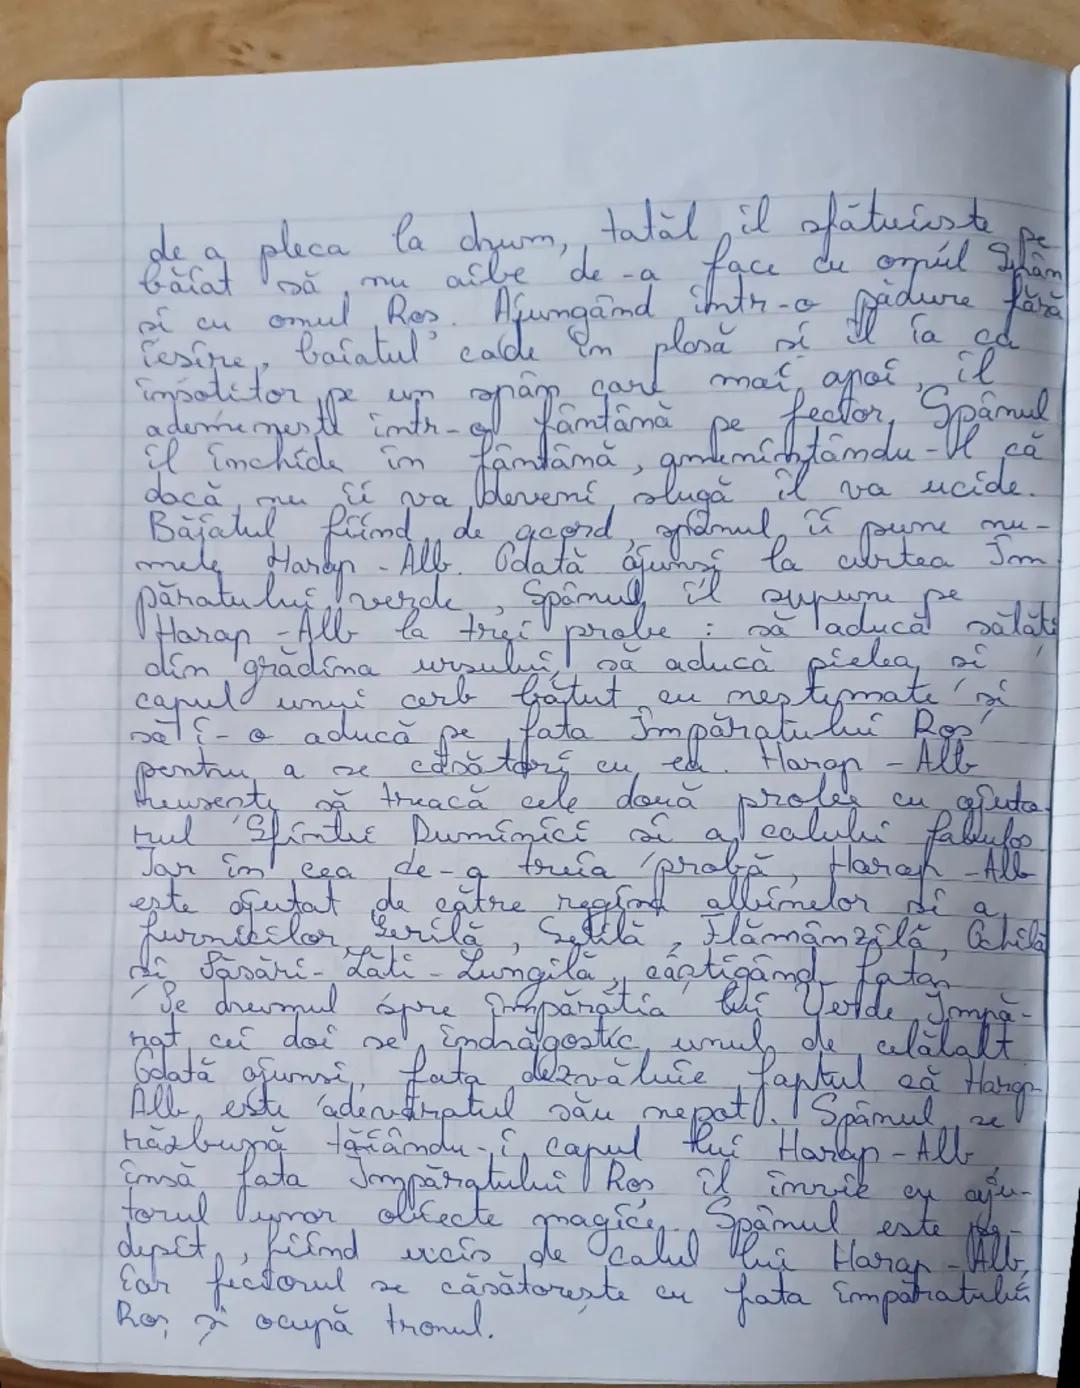 de a pleca la drum, tatăl îl sfătuiește pe
băiat să nu aibe de-a face cu omul Spân
și cu omul Roș. Ajungând într-o pădure fără
ieșire, baiatul cade în plasă și îl ia ca
însoțitor pe un spân care mai apoi, îl
ademenește într-o fântână pe fecior. Spânul
îl închide în fântână, amenințându-l că
dacă nu îi va deveni slugă îl va ucide.
Băiatul fiind de acord, spânul îi pune nu-
mele Harap-Alb. Odată ajunsi la curtea Îm
păratului verde, Spânul îl supune pe
Harap-Alb la trei probe: să aducă sălăți
din grădina ursului, să aducă pielea și
capul unui cerb bătut cu nestemate și
să i-o aducă pe fata Împăratului Roș
pentru a se căsători cu ea. Harap-Alb
reușește să treacă cele două probe cu ajuto-
rul Sfintei Duminici și a calului fabulos.
Iar în cea de-a treia probă, Harap-Alb
este ajutat de către regina albinelor și a
furnicilor, Gerilă, Setilă, Flămânzilă, Ochilă
și Păsări-Lăți-Lungilă, câștigând fata.
Pe drumul spre împărăția lui Verde Împă-
rat cei doi se îndrăgostic unul de celălalt.
Odată ajunsi, fata dezvăluie faptul că Harap
Alb este adevăratul său nepot. Spânul se
răzbună tăiându-i capul lui Harap-Alb
însă fata Împăratului Roș îl învie cu aju-
torul unor obiecte magice. Spânul este pe-
depsit, fiind ucis de calul lui Harap-Alb,
iar feciorul se căsătorește cu fata împăratului
Roș și ocupă tronul.